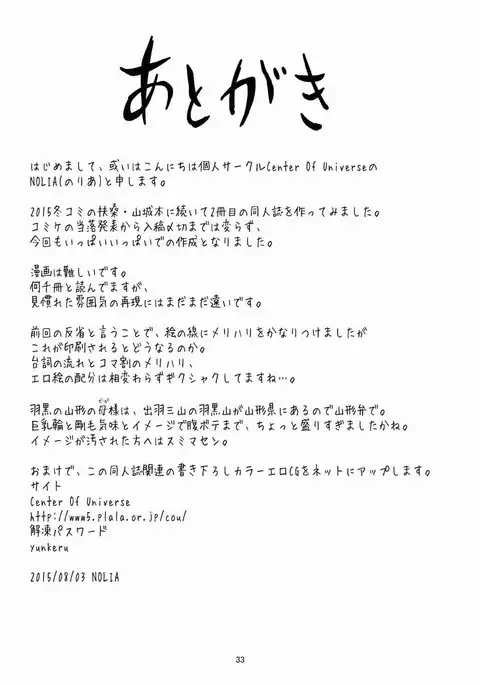 あとがき
はじめまして、或いはこんにちは個人サークルCenter Of Universeの
NOLIA(のりあ)と申します。
2015冬コミの扶桑・山城本に続いて2冊目の同人誌を作ってみました。
コミケの当落発表から入稿〆切までは変らず、
今回もいっぱいいっぱいでの作成となりました。
漫画は難しいです。
何千冊と読んでますが、
見慣れた雰囲気の再現にはまだまだ遠いです。
前回の反省と言うことで、絵の線にメリハリをかなりつけましたが
これが印刷されるとどうなるのか。
台詞の流れとコマ割のメリハリ、
エロ絵の配分は相変わらずギクシャクしてますね…。
羽黒の山形の母様は、出羽三山の羽黒山が山形県にあるので山形弁で。
巨乳輪と剛毛気味とイメージで腹ボテまで、ちょっと盛りすぎましたかね。
イメージが汚された方へはスミマセン。
おまけで、この同人誌関連の書き下ろしカラーエロCGをネットにアップします。
サイト
Center Of Universe
http://www5.plala.or.jp/cou/
解凍パスワード
yunkeru
2015/08/03 NOLIA
33